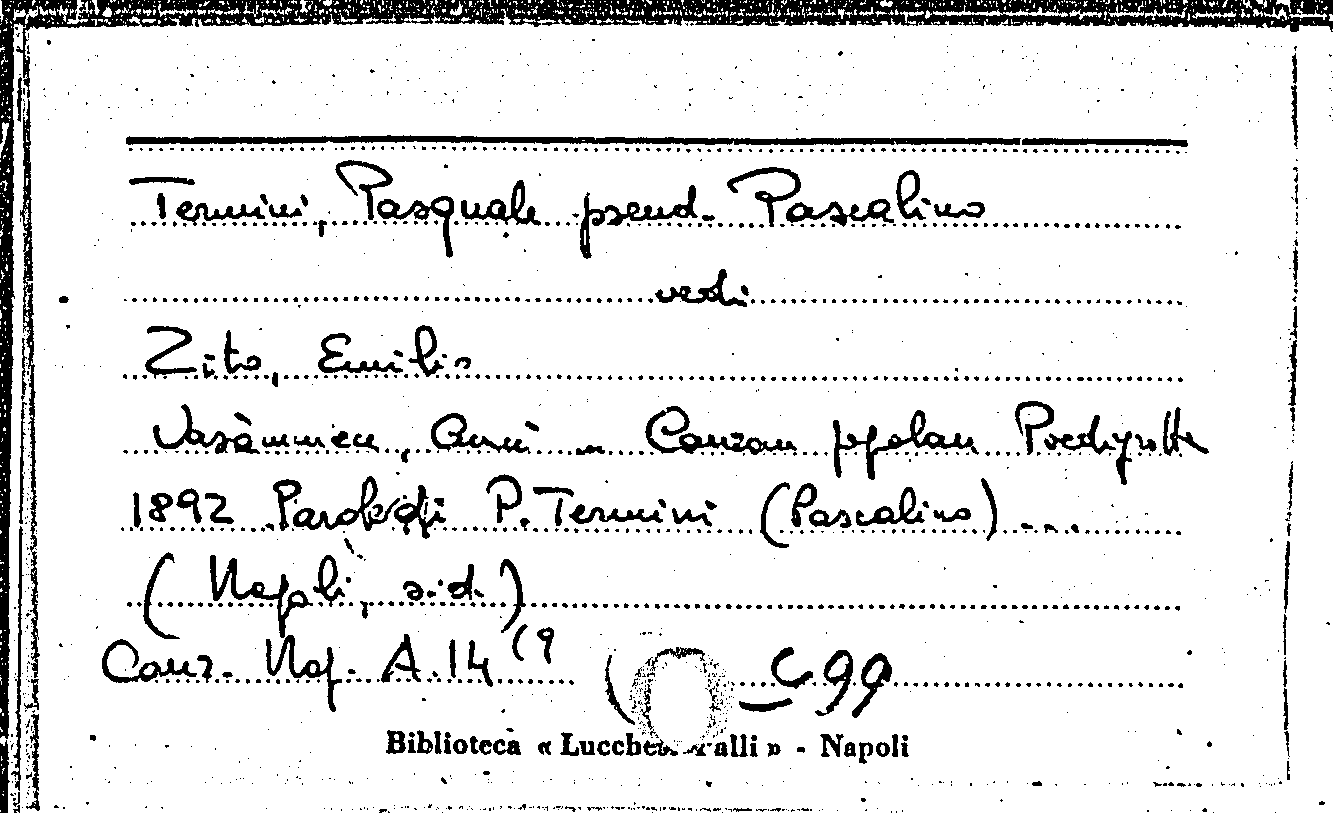 Termini, Pasquale pseud. Pascalino
vedi
Zito, Emilio
Vasàmmece, Carmè ... Canzone popolare Piedigrotta
1892 Parole di P. Termini (Pascalino) ...
(Napoli, s.d.)
Canz. Nap. A.14 (9 C 99
Biblioteca « Lucchesi Palli » - Napoli